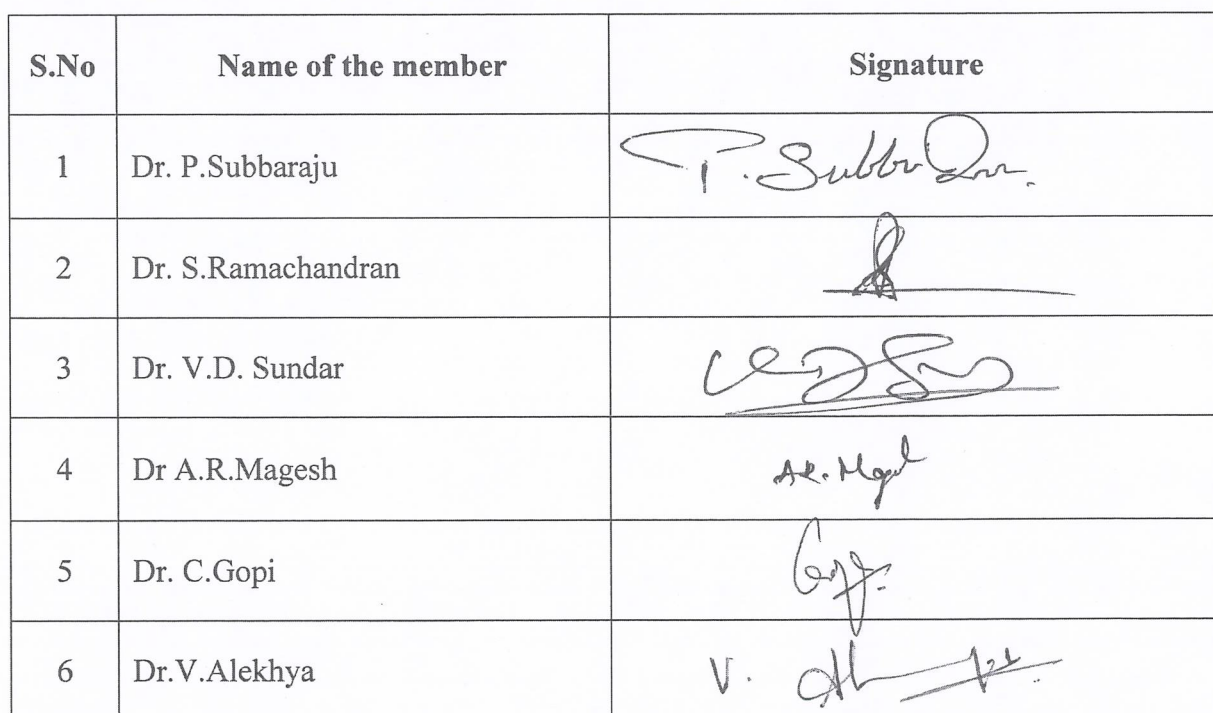 S.No Name of the member Signature
1 Dr. P.Subbaraju P. Subba
2 Dr. S.Ramachandran
3 Dr. V.D. Sundar
4 Dr A.R.Magesh A.R. Magesh
5 Dr. C.Gopi Gopi
6 Dr.V.Alekhya V.